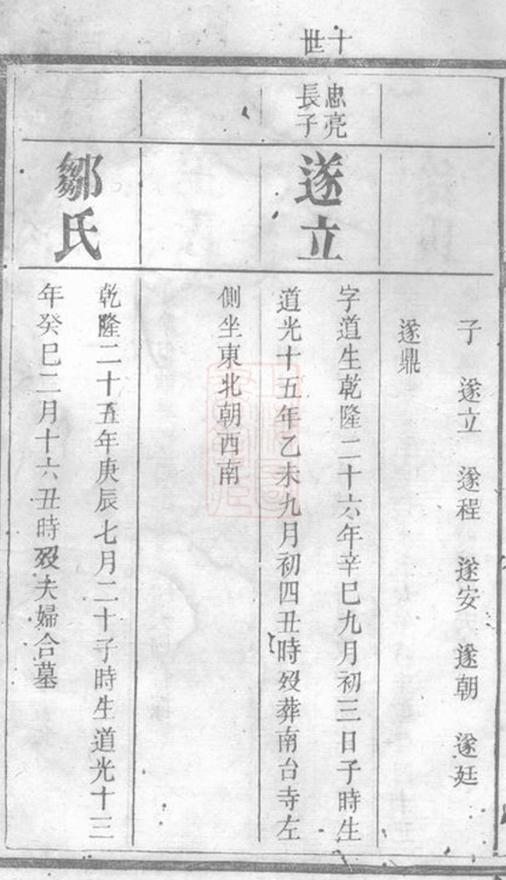 十世
子 遂立 遂程 遂安 遂朝 遂廷
遂鼎
忠亮
長子
遂立
字道生乾隆二十六年辛巳九月初三日子時生
道光十五年乙未九月初四丑時歿葬南台寺左
側坐東北朝西南
鄒氏
乾隆二十五年庚辰七月二十子時生道光十三
年癸巳二月十六丑時歿夫婦合墓